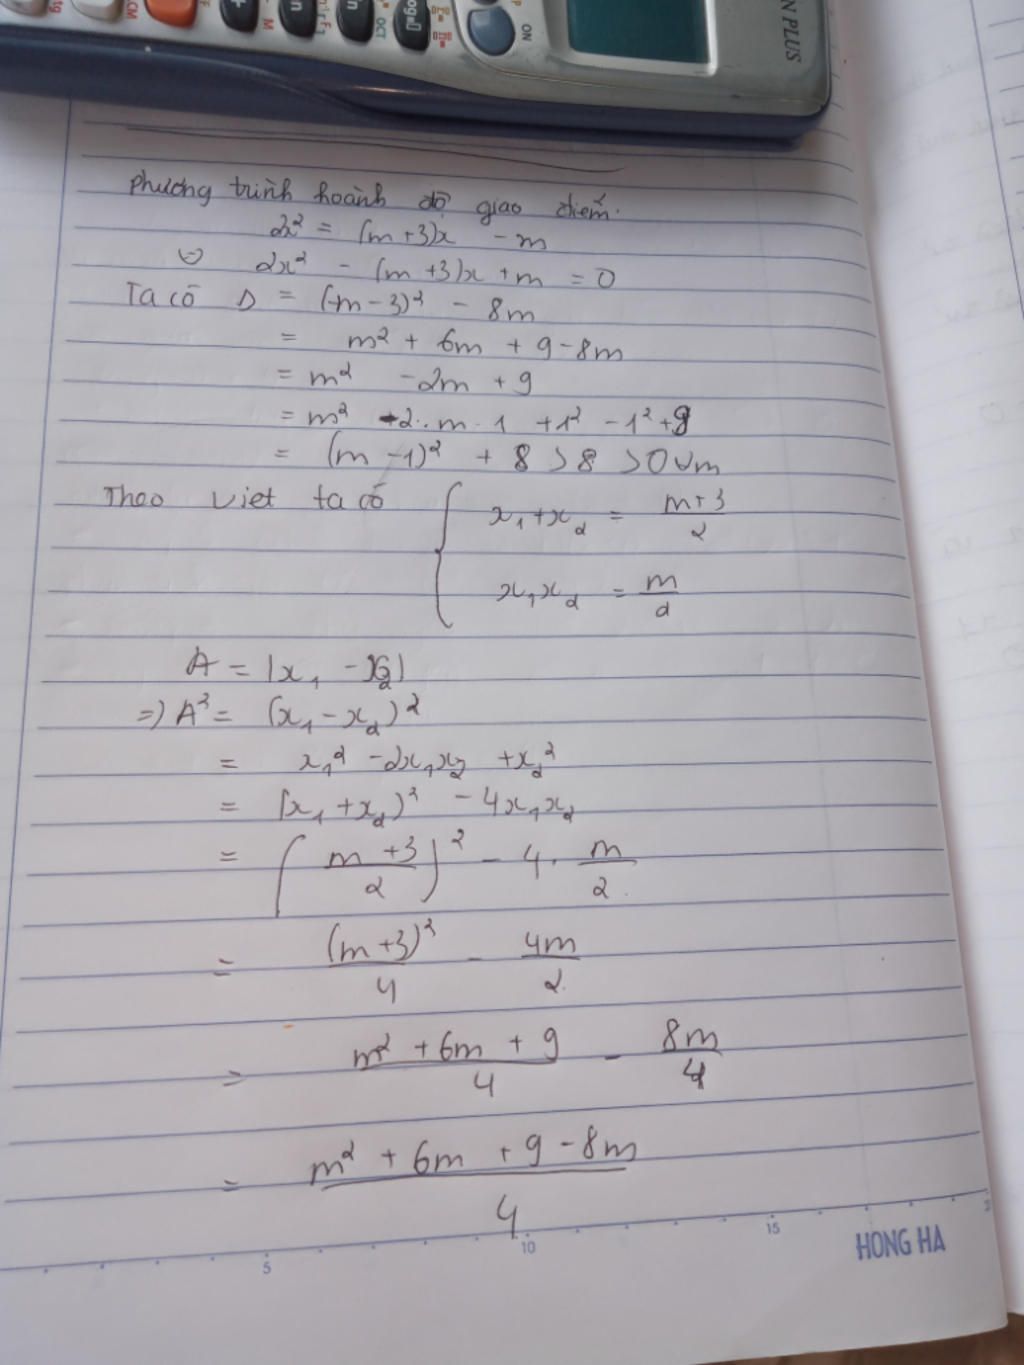 N PLUS
ON
OCT
M
CM
Phương trình hoành độ giao điểm.
2x² = (m+3)x - m
⇔ 2x² - (m+3)x + m = 0
Ta có Δ = (-m-3)² - 8m
= m² + 6m + 9 - 8m
= m² - 2m + 9
= m² - 2 . m . 1 + 1² - 1² + 9
= (m-1)² + 8 > 8 > 0 ∀m
Theo Viet ta có { x₁+x₂ = (m+3)/2
x₁x₂ = m/2
A = |x₁ - x₂|
=> A² = (x₁ - x₂)²
= x₁² - 2x₁x₂ + x₂²
= (x₁ + x₂)² - 4x₁x₂
= ((m+3)/2)² - 4 . m/2.
= (m+3)²/4 - 4m/2.
= (m² + 6m + 9)/4 - 8m/4
= (m² + 6m + 9 - 8m)/4
5 10 15
HONG HA